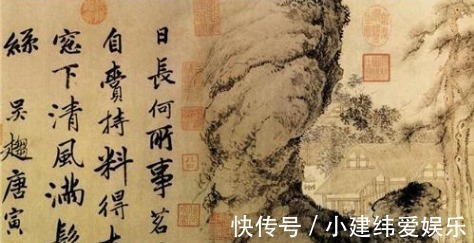 日長何所事茗
自賚持料得
窓下清風滿
絲 吳趨唐寅
快传号 / 小建纬爱娱乐